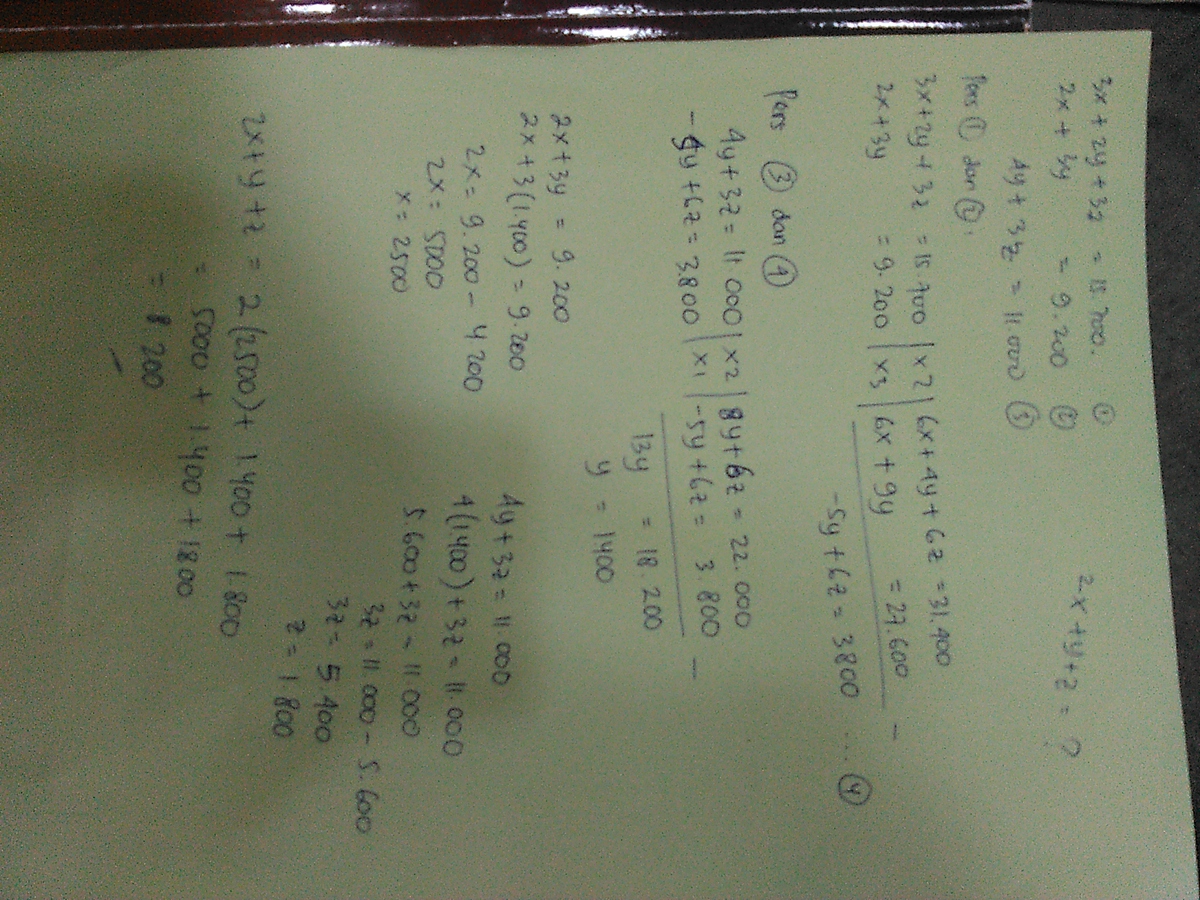 3x + 2y + 3z = 15.700. ①
2x + 3y = 9.200 ②
4y + 3z = 11.000 ③
2x + y + z = ?
Pers ① dan ②.
3x + 2y + 3z = 15.700 | x2 | 6x + 4y + 6z = 31.400
2x + 3y = 9.200 | x3 | 6x + 9y = 27.600 -
-5y + 6z = 3800 ... ④
Pers ③ dan ④
4y + 3z = 11.000 | x2 | 8y + 6z = 22.000
-5y + 6z = 3.800 | x1 | -5y + 6z = 3.800 -
13y = 18.200
y = 1400
2x + 3y = 9.200
2x + 3(1.400) = 9.200
2x = 9.200 - 4200
2x = 5000
x = 2500
4y + 3z = 11.000
4(1.400) + 3z = 11.000
5.600 + 3z = 11.000
3z = 11.000 - 5.600
3z = 5.400
z = 1800
2x + y + z = 2(2500) + 1.400 + 1.800
= 5000 + 1.400 + 1800
= 8.200